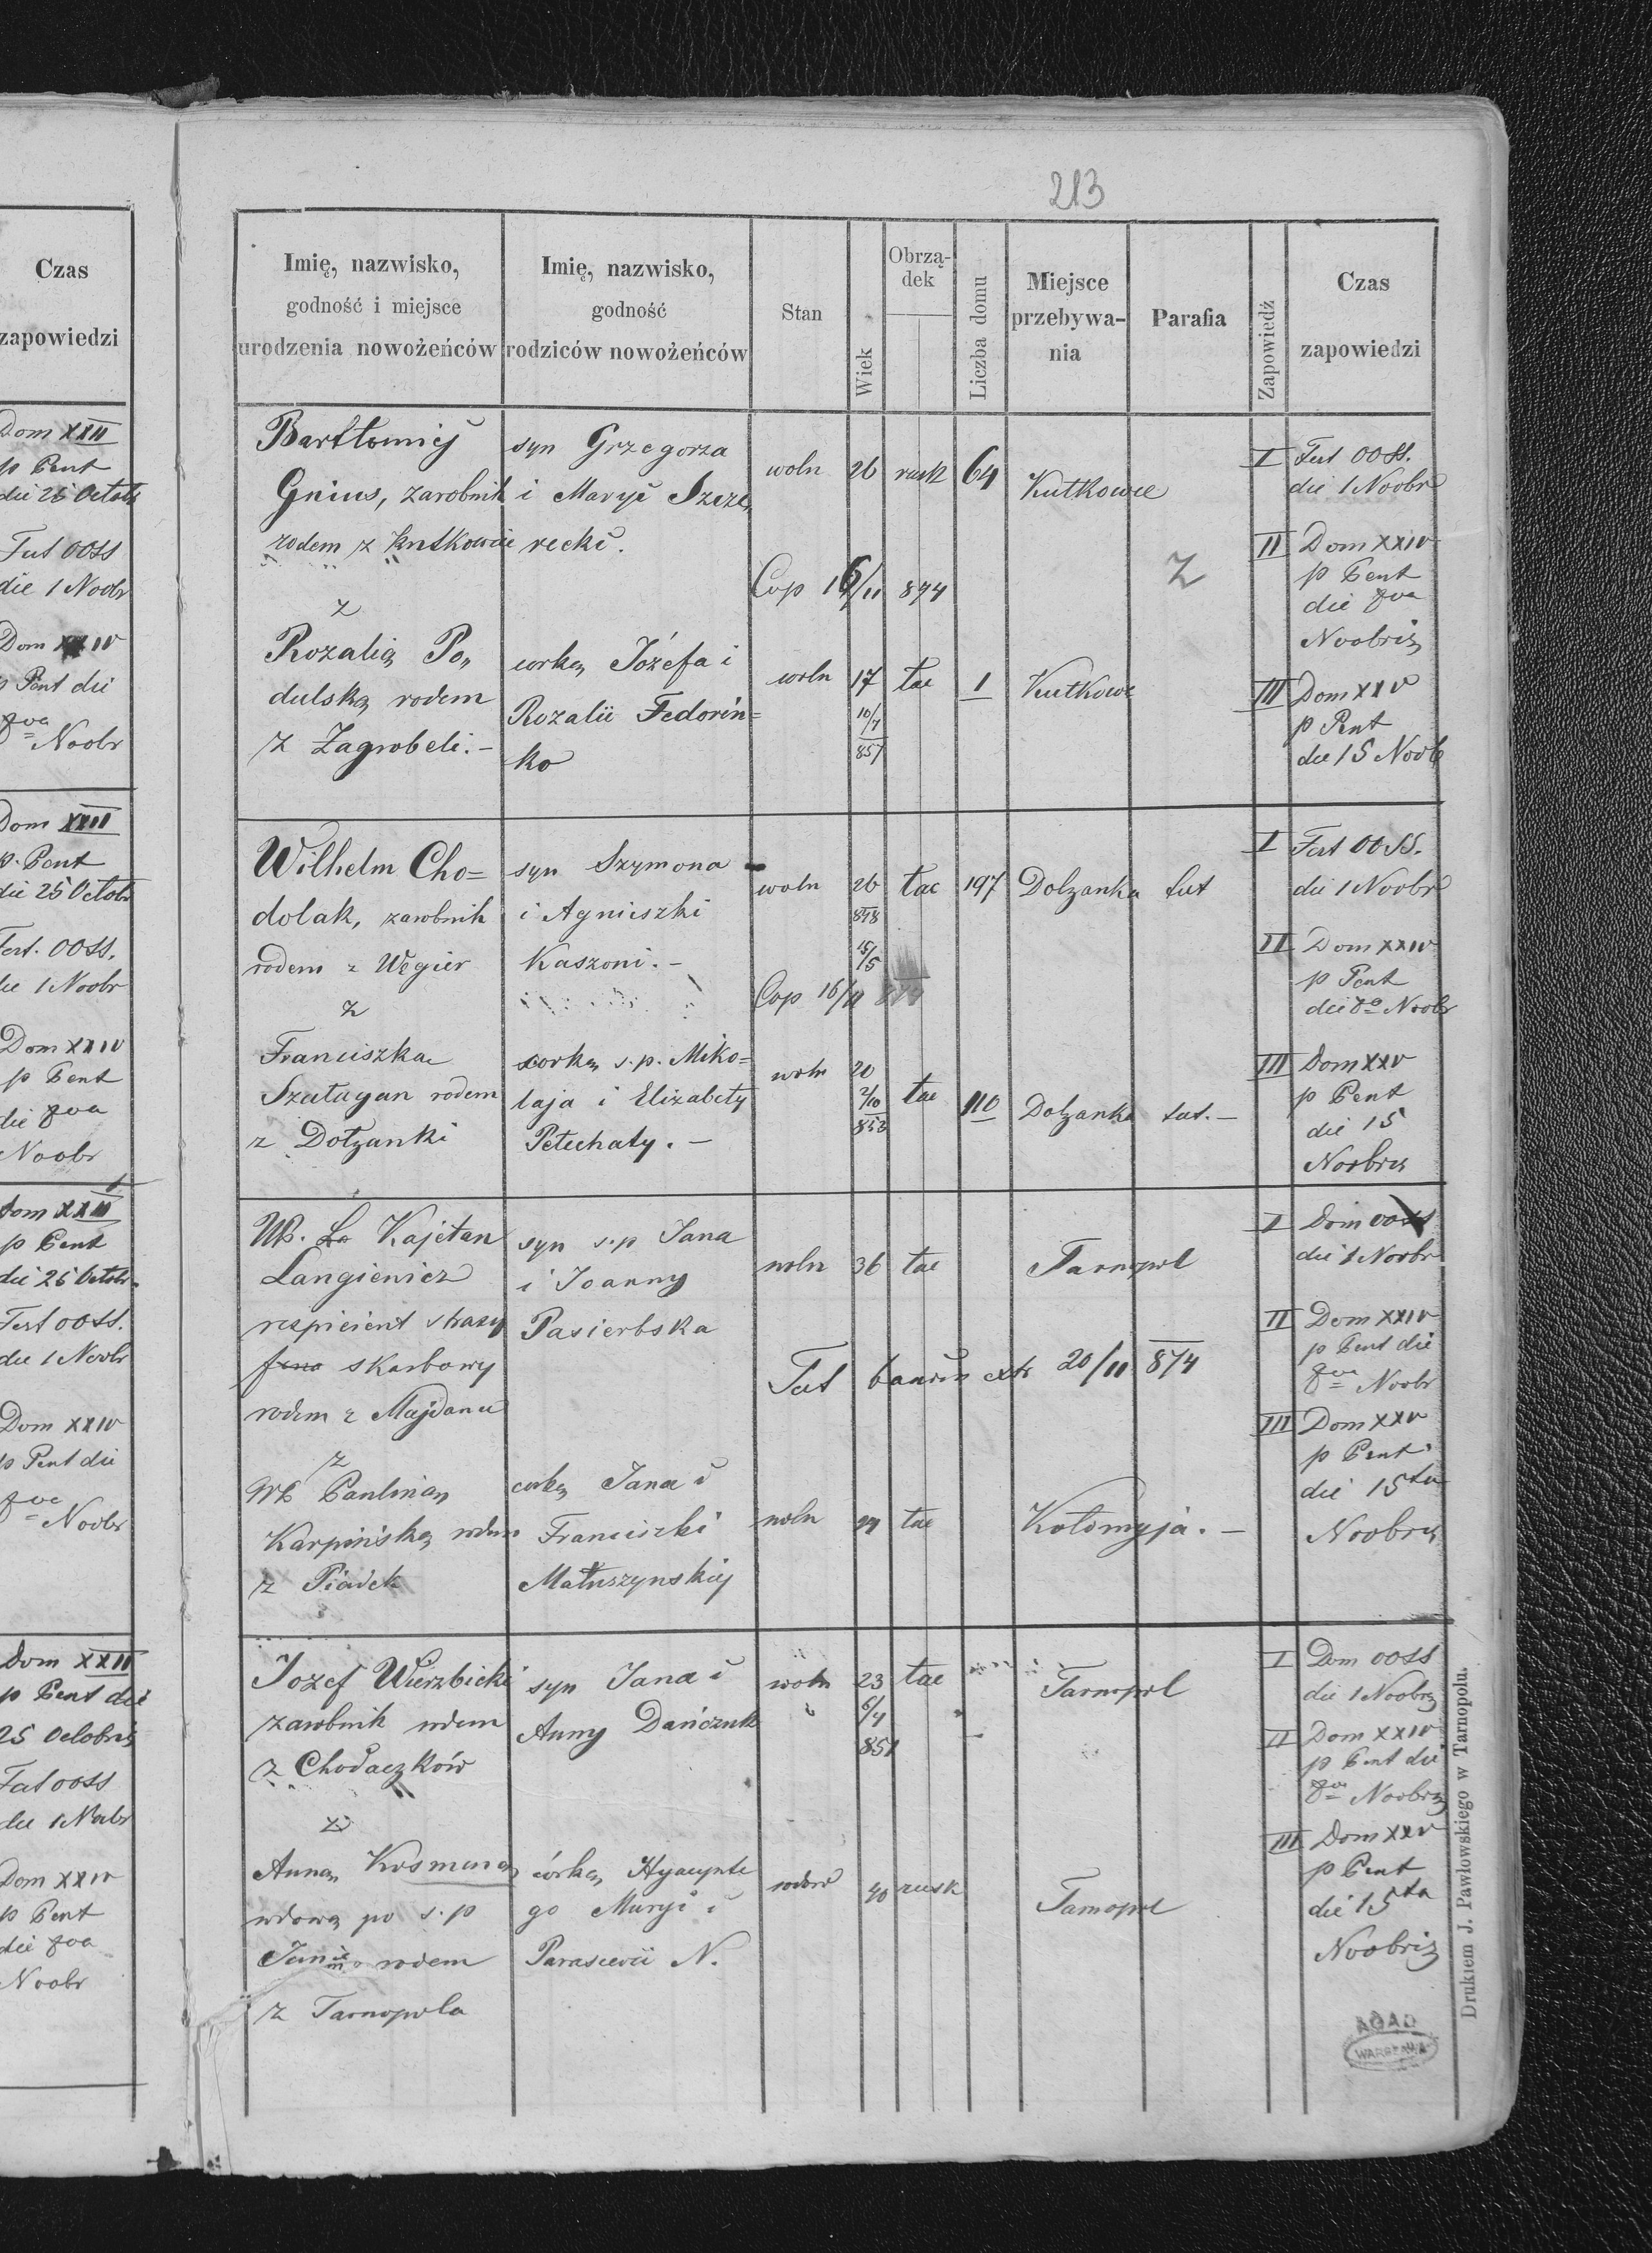 213
Czas
zapowiedzi
Dom XXIII
p Pent
die 25 Octobr
Fest OOSS
die 1 Noobr
Dom XXIV
p Pent die
8va Noobr
Dom XXIII
p. Pent
die 25 Octobr
Fest. OOSS.
die 1 Noobr
Dom XXIV
p Pent
die 8va
Noobr
Dom XXIII
p Pent
die 25 Octobr
Fest OOSS.
die 1 Noobr
Dom XXIV
p Pent die
8va Noobr
Dom XXIII
p Pent die
25 Octobris
Fest OOSS
die 1 Noobr
Dom XXIV
p Pent
die 8va
Noobr
Imię, nazwisko,
godność i miejsce
urodzenia nowożeńców
Imię, nazwisko,
godność
rodziców nowożeńców
Stan
Wiek
Obrzą-
dek
Liczba domu
Miejsce
przebywa-
nia
Parafia
Zapowiedź
Czas
zapowiedzi
Bartłomiej
Gnius, zarobnik
rodem z Kutkowiec
z
Rozalią Po„
dulską rodem
z Zagrobeli.-
syn Grzegorza
i Maryi Szcze„
recki.
corką Józefa i
Rozalii Fedorin=
ko
woln 26 rusk 64 Kutkowce
Cop 16/11 874
z
woln 17 łac 1 Kutkowce
10/7
857
I Fest OOSS.
die 1 Noobr
II Dom XXIV
p Pent
die 8va
Noobris
III Dom XXV
p Pent
die 15 Noob
Wilhelm Cho=
dolak, zarobnik
rodem z Węgier
z
Franciszka
Szatagan rodem
z Dołzanki
syn Szymona
i Agnieszki
Kaszoni.-
corką s.p. Miko=
łaja i Elizabety
Petechaty.-
woln 26 łac 197 Dolzanka tut
848
15/5
Cop 16/11 874
woln 20 łac 110 Dolzanka tut.-
2/10
853
I Fest OOSS.
die 1 Noobr
II Dom XXIV
p Pent
die 8a Noobr
III Dom XXV
p Pent
die 15
Noobris
WP. La Kajetan
Langiewicz
respicient strazy
skarbowy
rodem z Majdanu
z
WP Pauliną
Karpińską rodem
z Piadek
syn s.p Jana
i Joanny
Pasierbska
corką Jana i
Franciszki
Matuszynskiej
woln 36 łac Tarnopol
Tut bannis extr 20/11 874
woln 24 łac Kołomyja.-
I Dom OOSS
die 1 Noobr
II Dom XXIV
p Pent die
8va Noobr
III Dom XXV
p Pent
die 15ta
Noobris
Jozef Wierzbicki
zarobnik rodem
z Chodaczków
z
Anną Kosmina
wdową po s.p
rodem
z Tarnopola
syn Jana i
Anny Dańczuk
córką Hyacynte
go Muryi i
Parascevii N.
woln 23 łac Tarnopol
6/4
851
wdow 40 rusk Tarnopol
I Dom OOSS
die 1 Noobris
II Dom XXIV
p Pent die
8va Noobris
III Dom XXV
p Pent
die 15ta
Noobris
Drukiem J. Pawłowskiego w Tarnopolu.
AGAD
WARSZAWA